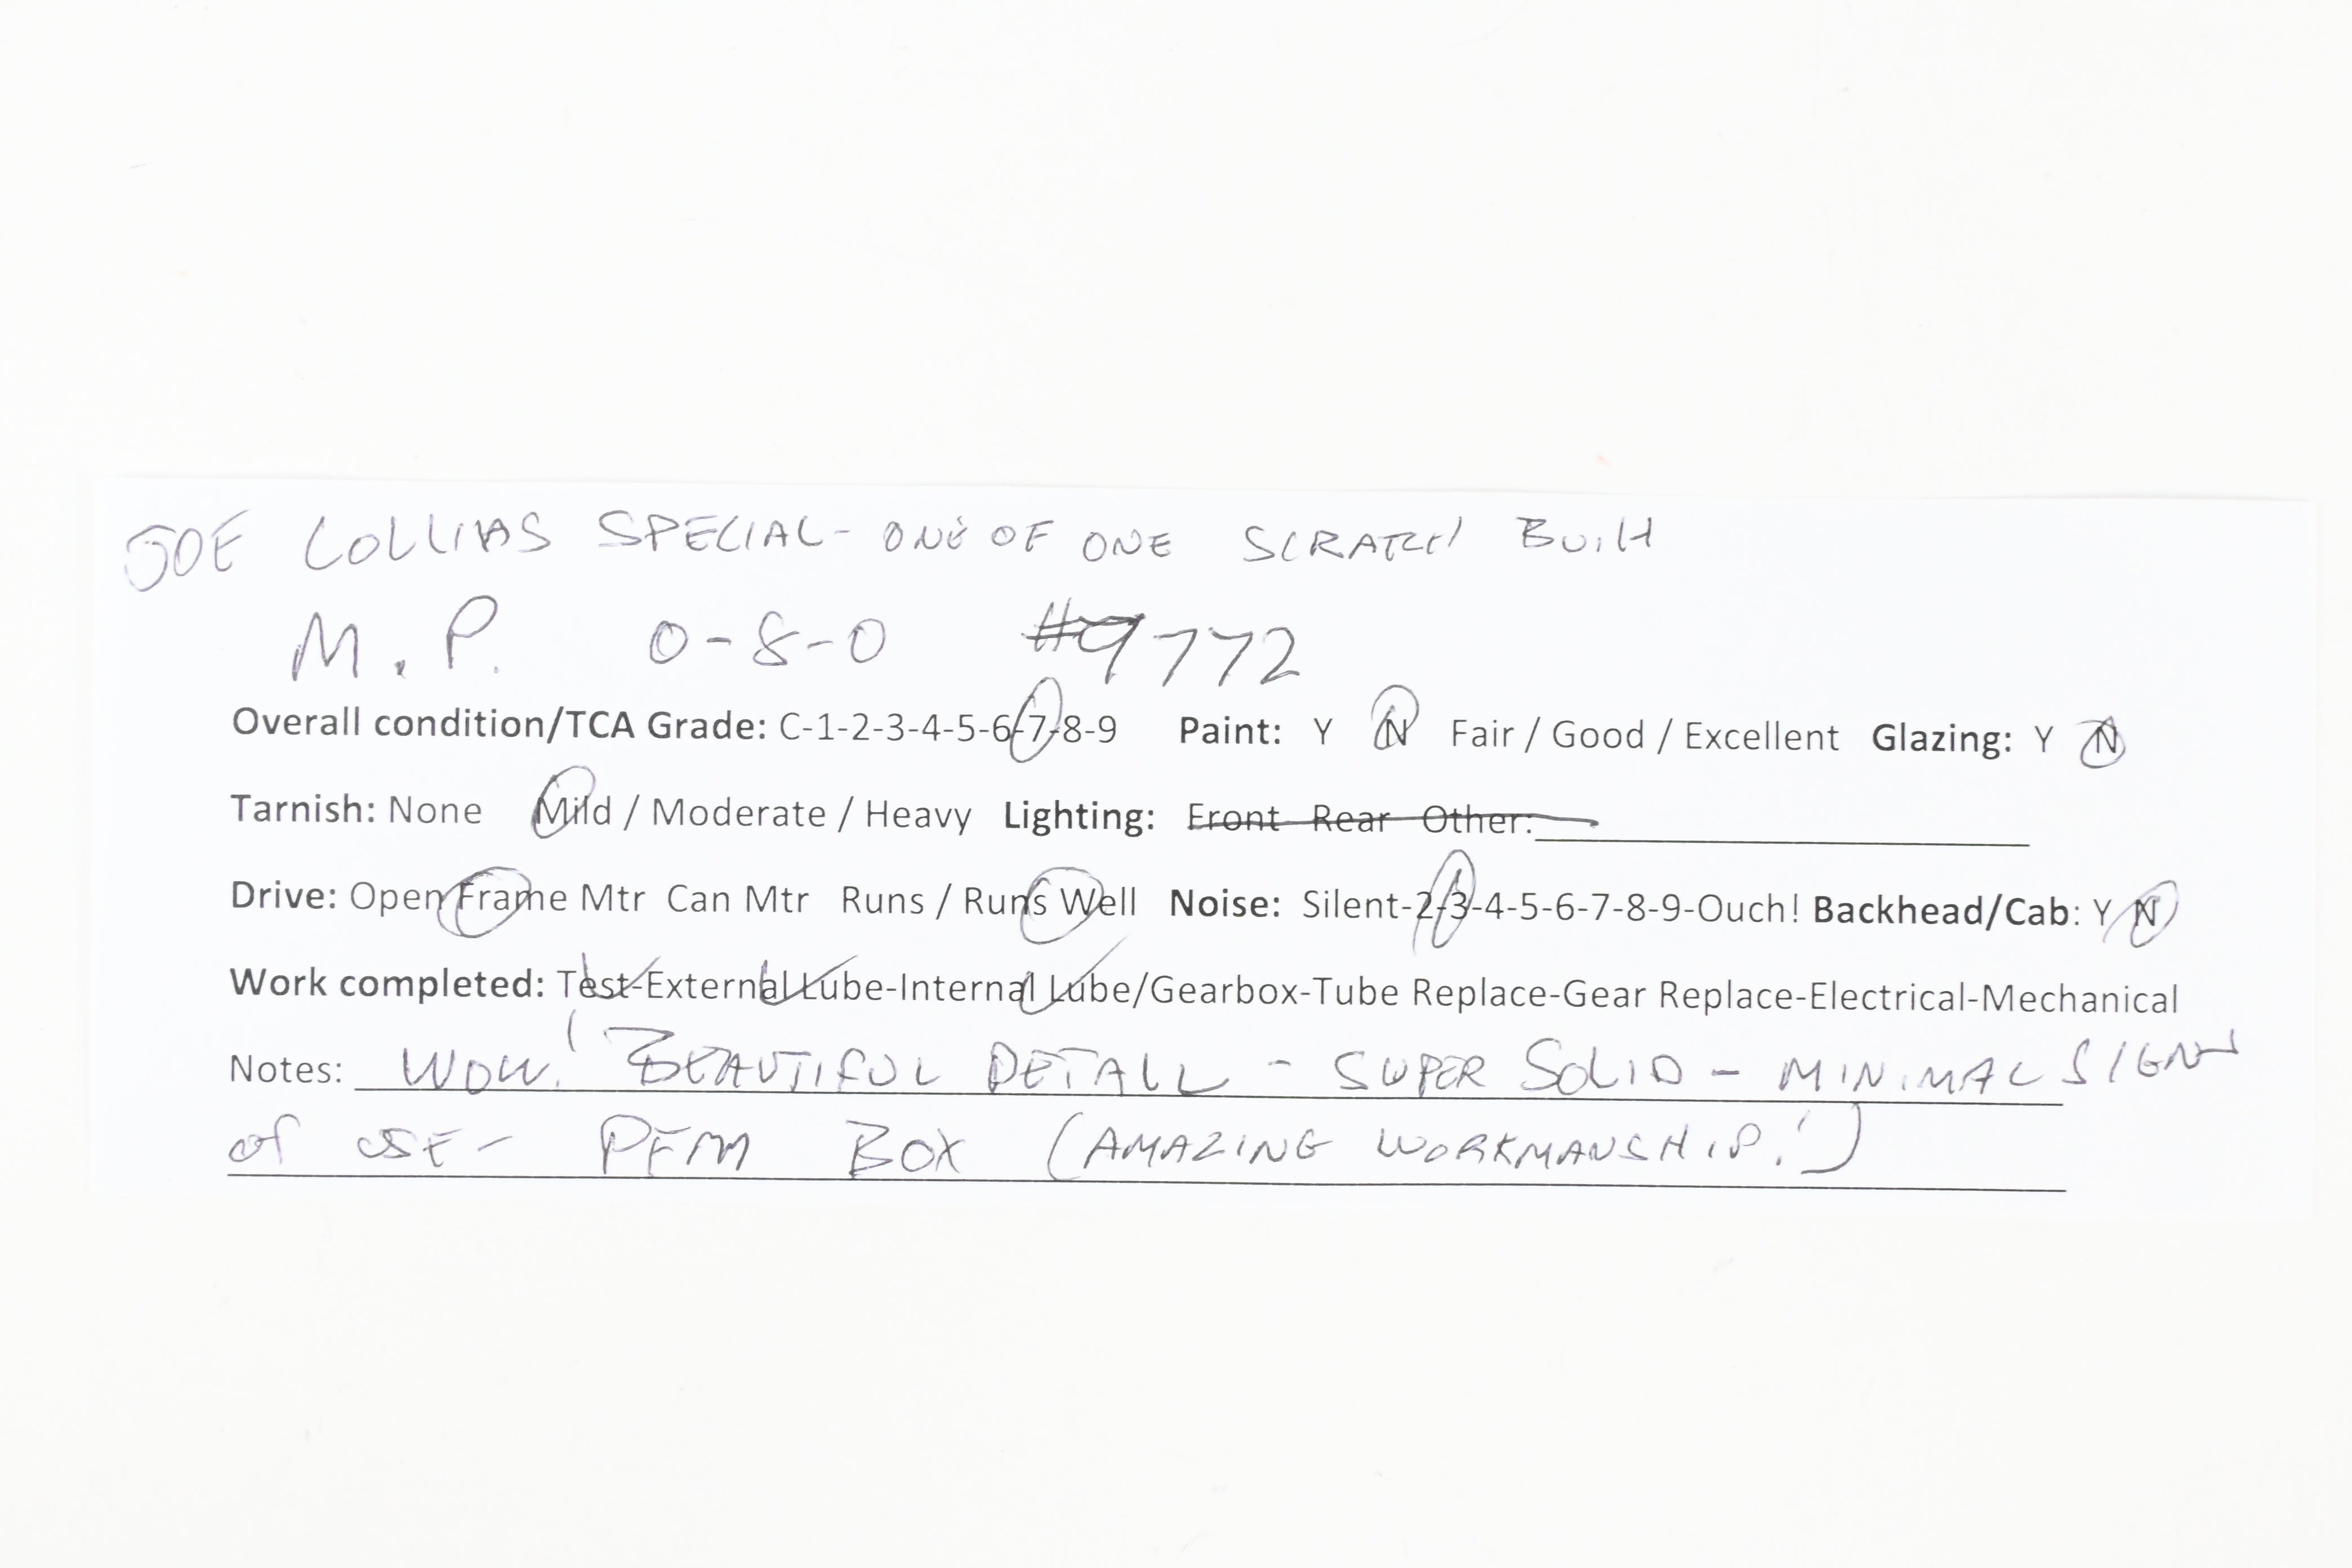 JOE COLLIAS SPECIAL - ONE OF ONE SCRATCH BUILT
M.P. 0-8-0 #9772
Overall condition/TCA Grade: C-1-2-3-4-5-6-7-8-9 Paint: Y N Fair / Good / Excellent Glazing: Y N
Tarnish: None Mild / Moderate / Heavy Lighting: Front Rear Other:
Drive: Open Frame Mtr Can Mtr Runs / Runs Well Noise: Silent-2-3-4-5-6-7-8-9-Ouch! Backhead/Cab: Y N
Work completed: Test-External Lube-Internal Lube/Gearbox-Tube Replace-Gear Replace-Electrical-Mechanical
Notes: WOW! BEAUTIFUL DETAIL - SUPER SOLID - MINIMAL SIGNS
of USE - PFM BOX (AMAZING WORKMANSHIP!)